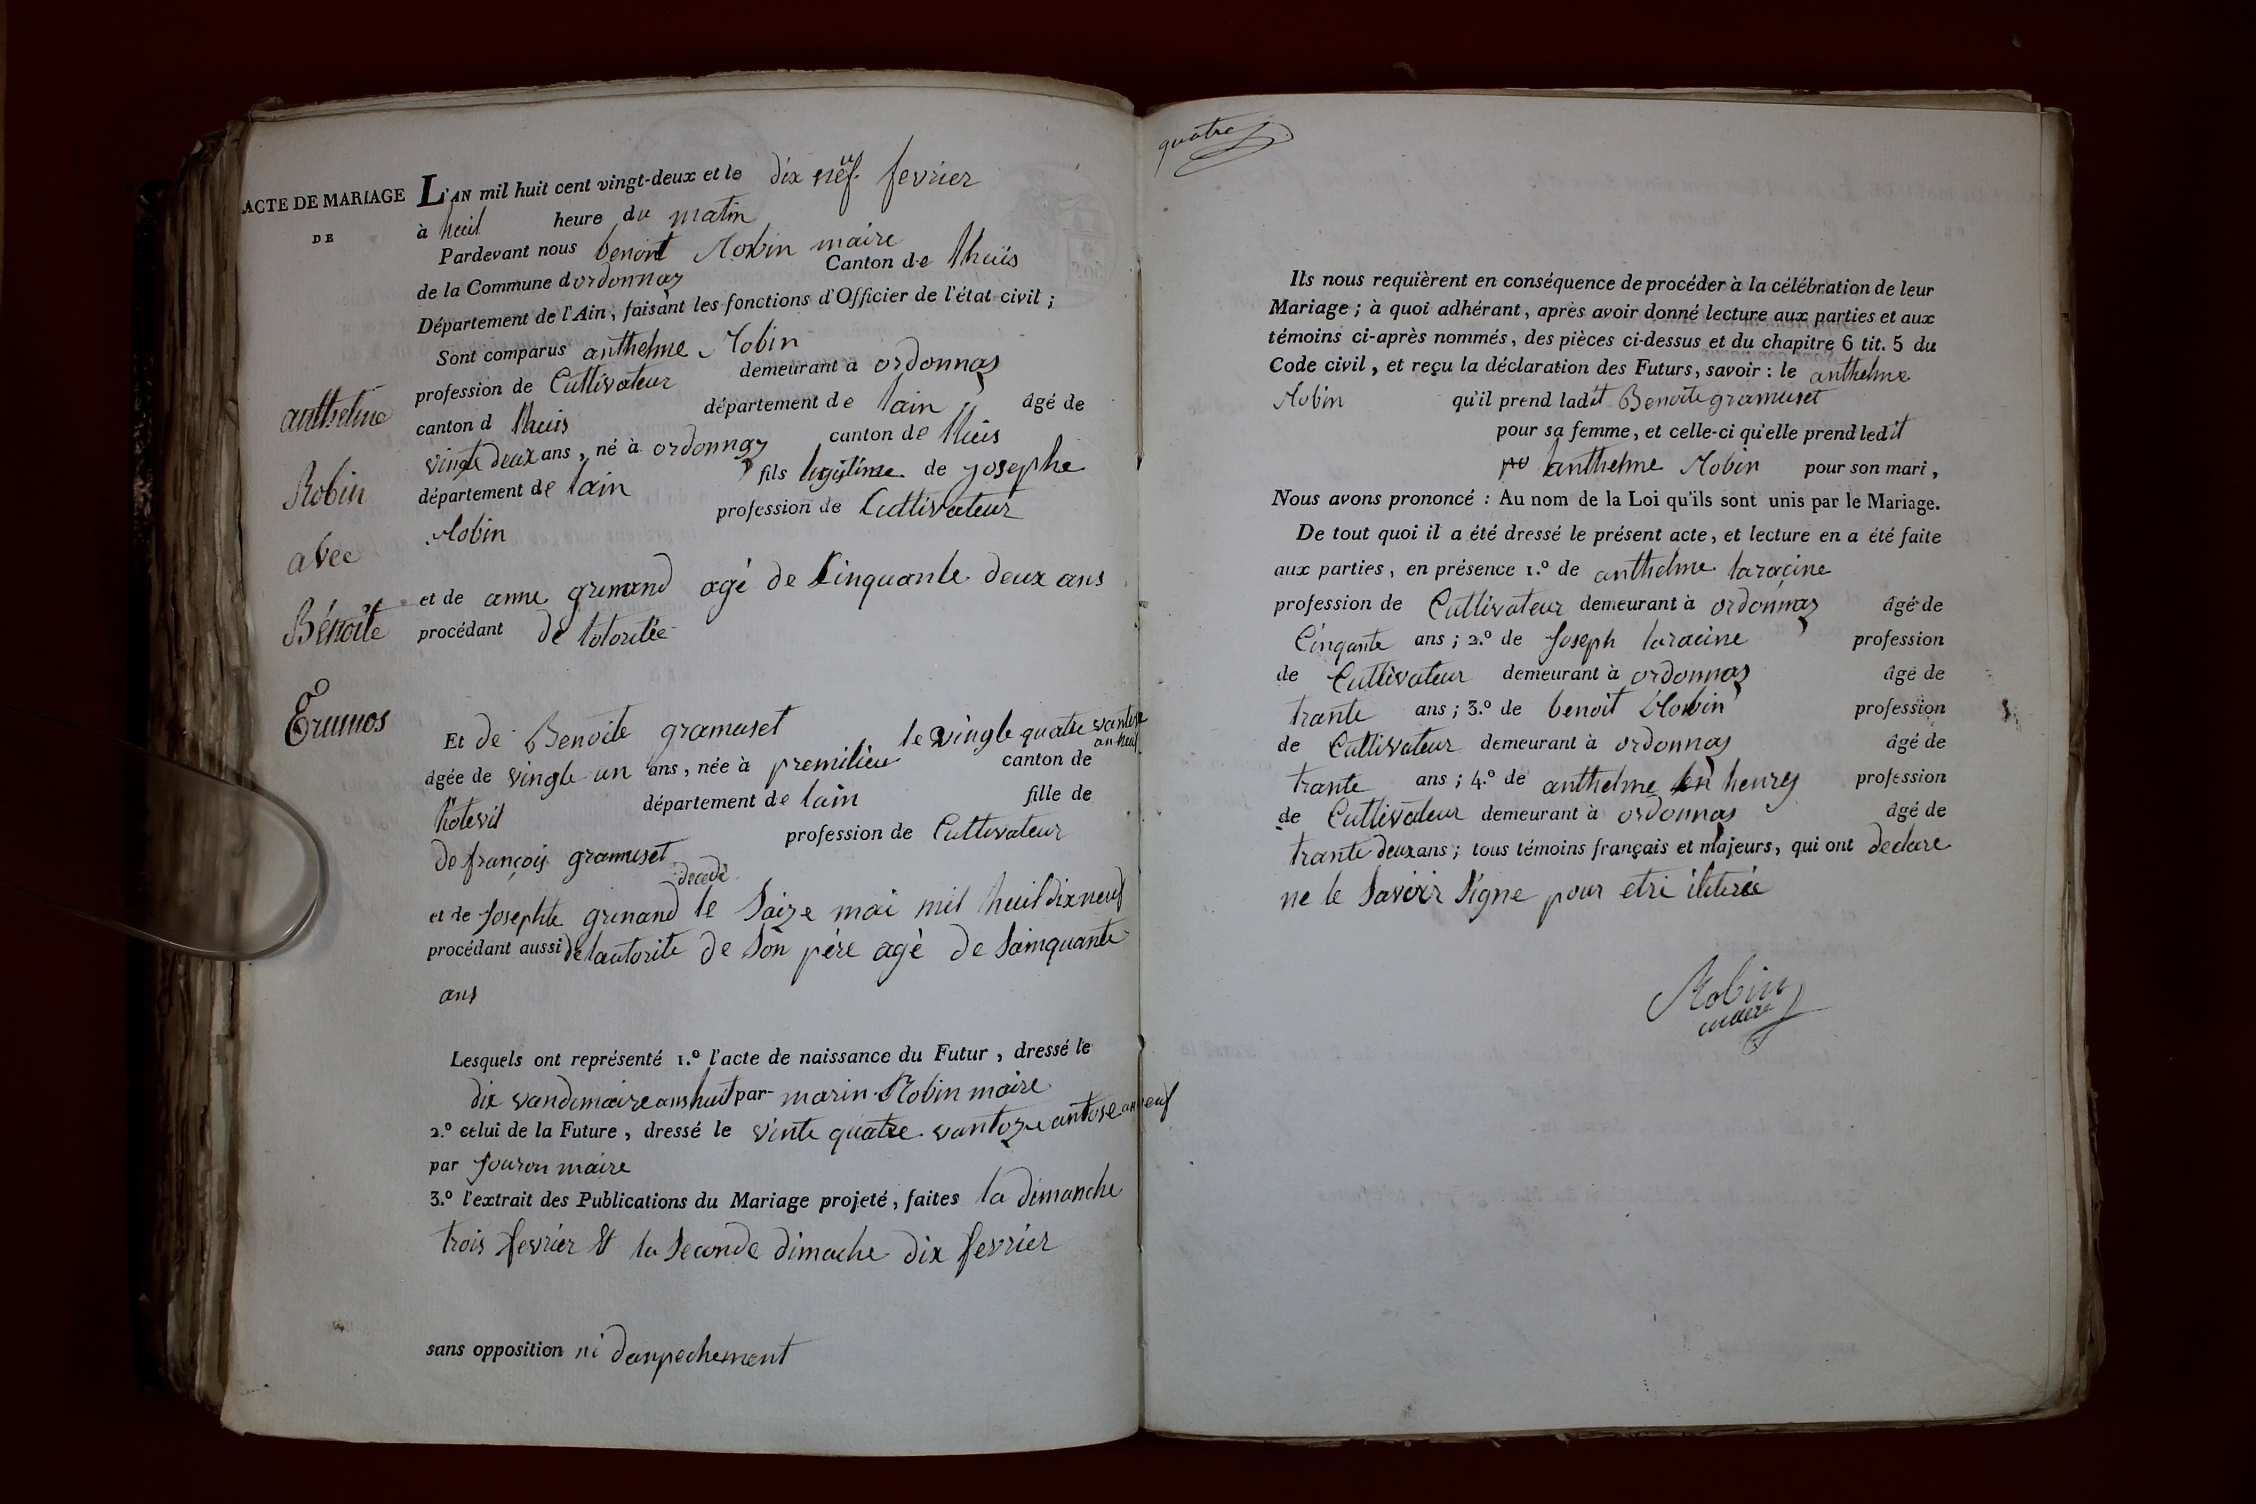 ACTE DE MARIAGE
DE
anthelme
Robin
avec
Bénoite
L'AN mil huit cent vingt-deux et le dix neuf fevrier
à huit heure du matin
Pardevant nous benoit Robin maire
de la Commune d ordonnaz Canton de lhuis
Département de l'Ain, faisant les fonctions d'Officier de l'état civil ;
Sont comparus anthelme Robin
profession de Cultivateur demeurant à ordonnas
canton d lhuis département de lain âgé de
vingte deux ans, né à ordonnaz canton de lhuis
département de lain fils legitime de josephe
Robin profession de Cultivateur
et de anne grinand agé de Cinquante deux ans
procédant de lotoritée
Et de Benoite gramuset le vingte quatre vantose
an neuf
âgée de vingte un ans, née à premilieu canton de
hotevil département de lain fille de
de françois gramuset profession de Cultivateur
decedé
et de josephte grinand le Saize mai mil huit dix neuf
procédant aussi de lautorite de Son père agé de Sainquante
ans
Lesquels ont représenté 1.º l'acte de naissance du Futur, dressé le
dix vandemaire ans huit par marin Robin maire
2.º celui de la Future, dressé le vinte quatre vantoze antose an neuf
par maire
3.º l'extrait des Publications du Mariage projeté, faites la dimanche
trois fevrier Et la Seconde dimache dix fevrier
sans opposition ni danpechement
quatre
Ils nous requièrent en conséquence de procéder à la célébration de leur
Mariage ; à quoi adhérant, après avoir donné lecture aux parties et aux
témoins ci-après nommés, des pièces ci-dessus et du chapitre 6 tit. 5 du
Code civil, et reçu la déclaration des Futurs, savoir : le anthelme
Robin qu'il prend ladit Benoite gramuset
pour sa femme, et celle-ci qu'elle prend ledit
anthelme Robin pour son mari,
Nous avons prononcé : Au nom de la Loi qu'ils sont unis par le Mariage.
De tout quoi il a été dressé le présent acte, et lecture en a été faite
aux parties, en présence 1.º de anthelme laracine
profession de Cultivateur demeurant à ordonnaz âgé de
Cinqante ans ; 2.º de Joseph laracine profession
de Cultivateur demeurant à ordonnaz âgé de
trante ans ; 3.º de benoit Robin profession
de Cultivateur demeurant à ordonnas âgé de
trante ans ; 4.º de anthelme henrey profession
de Cultivateur demeurant à ordonnas âgé de
trante deux ans ; tous témoins français et majeurs, qui ont declare
ne le Savoir Signe pour etre iliterée
Robin
maire